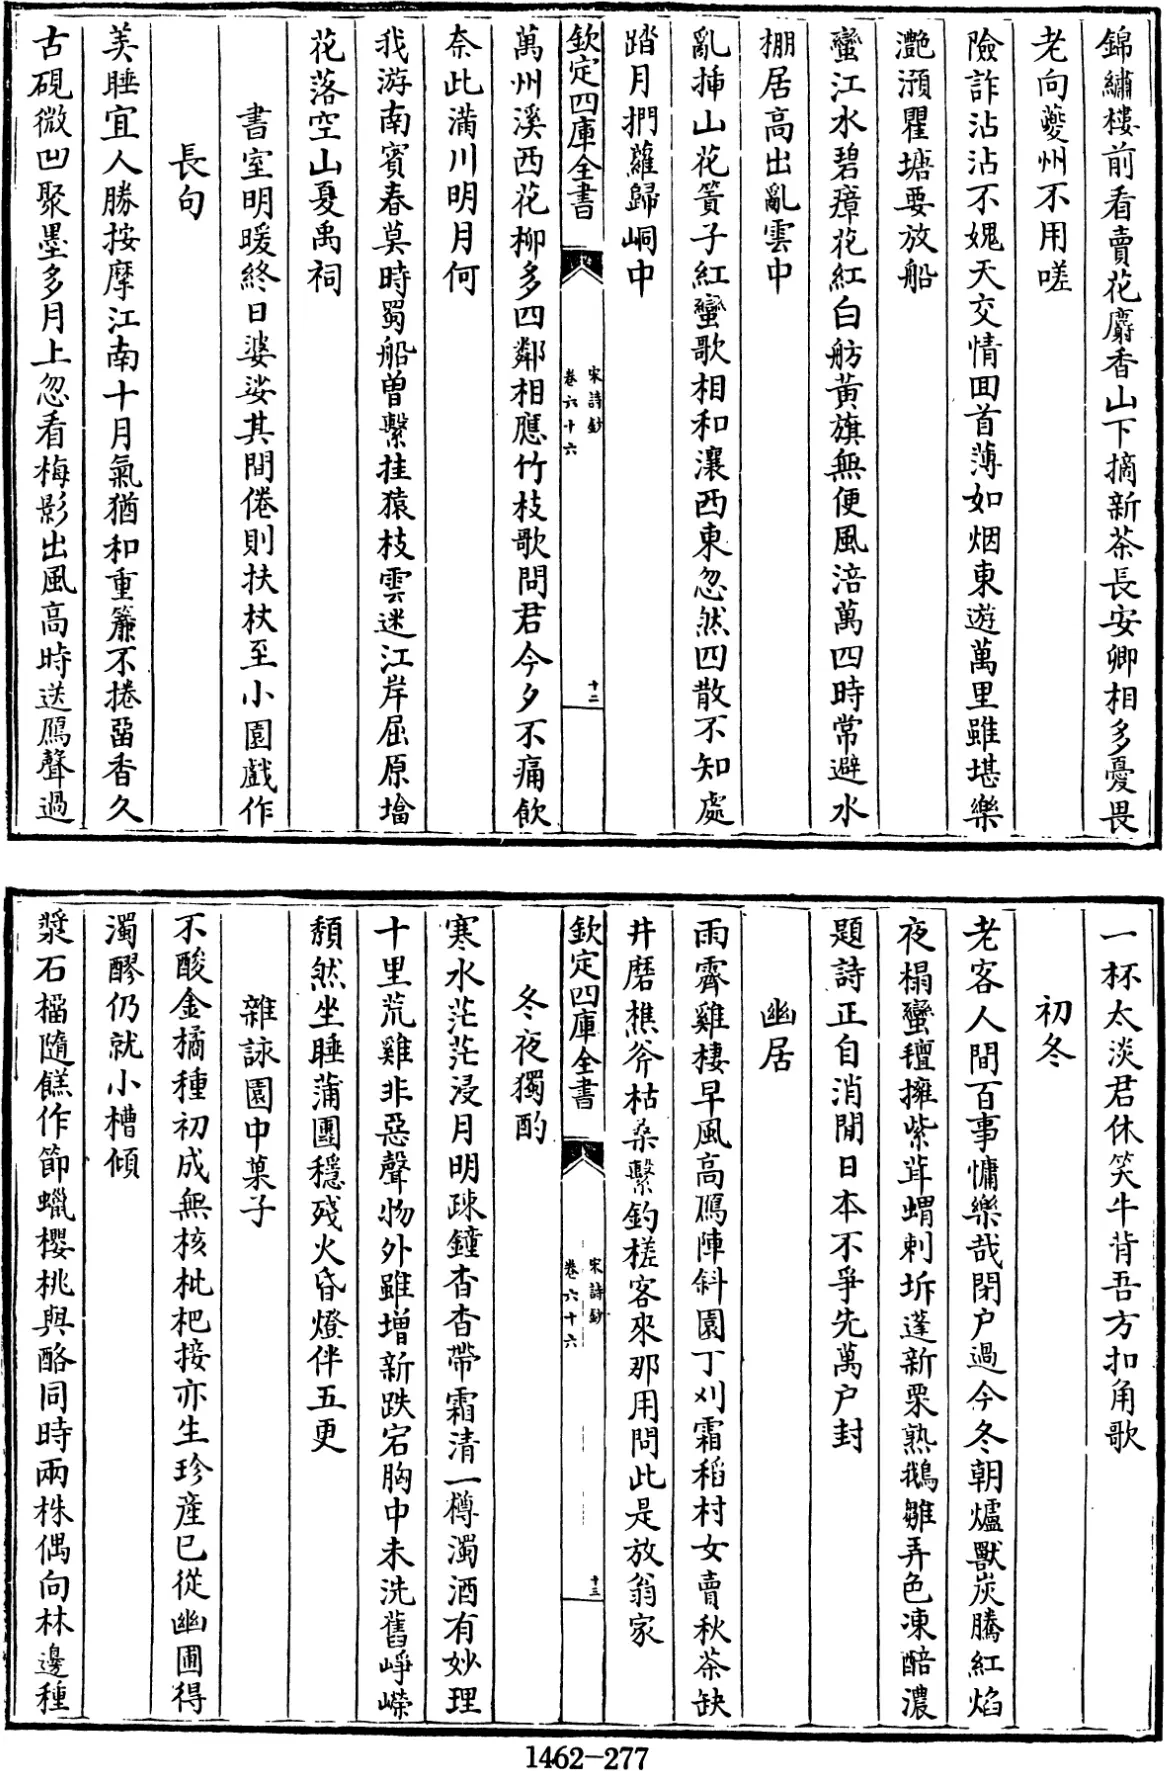 錦繡樓前看賣花麝香山下摘新茶長安卿相多憂畏
老向夔州不用嗟
險詐沾沾不媿天交情囬首薄如烟東遊萬里雖堪樂
灔澦瞿塘要放船
蠻江水碧瘴花紅白舫黄旗無便風涪萬四時常避水
棚居高出亂雲中
亂揷山花簧子紅蠻歌相和瀼西東忽然四散不知處
踏月捫蘿歸峒中
欽定四庫全書
宋詩鈔
卷六十六
十二
萬州溪西花柳多四鄰相應竹枝歌問君今夕不痛飲
奈此滿川明月何
我游南賓春莫時蜀船曽繫挂猿枝雲迷江岸屈原墖
花落空山夏禹祠
書室明暖終日婆娑其間倦則扶杖至小園戲作
長句
美睡宜人勝按摩江南十月氣猶和重簾不捲畱香久
古硯微凹聚墨多月上忽看梅影出風高時送鴈聲過
一杯太淡君休笑牛背吾方扣角歌
初冬
老客人間百事慵樂哉閉户過今冬朝爐獸炭騰紅焰
夜榻蠻氊擁紫茸蝟刺坼蓬新栗熟鵝雛弄色凍醅濃
題詩正自消閒日本不爭先萬户封
幽居
雨霽雞棲早風高鴈陣斜園丁刈霜稻村女賣秋茶缺
井磨樵斧枯桑繫釣槎客來那用問此是放翁家
欽定四庫全書
宋詩鈔
卷六十六
十三
冬夜獨酌
寒水茫茫浸月明疎鐘杳杳帶霜清一樽濁酒有妙理
十里荒雞非惡聲物外雖增新跌宕胸中未洗舊崢嶸
頽然坐睡蒲團穩殘火昏燈伴五更
雜詠園中菓子
不酸金橘種初成無核枇杷接亦生珍産已從幽圃得
濁醪仍就小槽傾
漿石榴隨餻作節蠟櫻桃與酪同時兩株偶向林邊種
1462-277